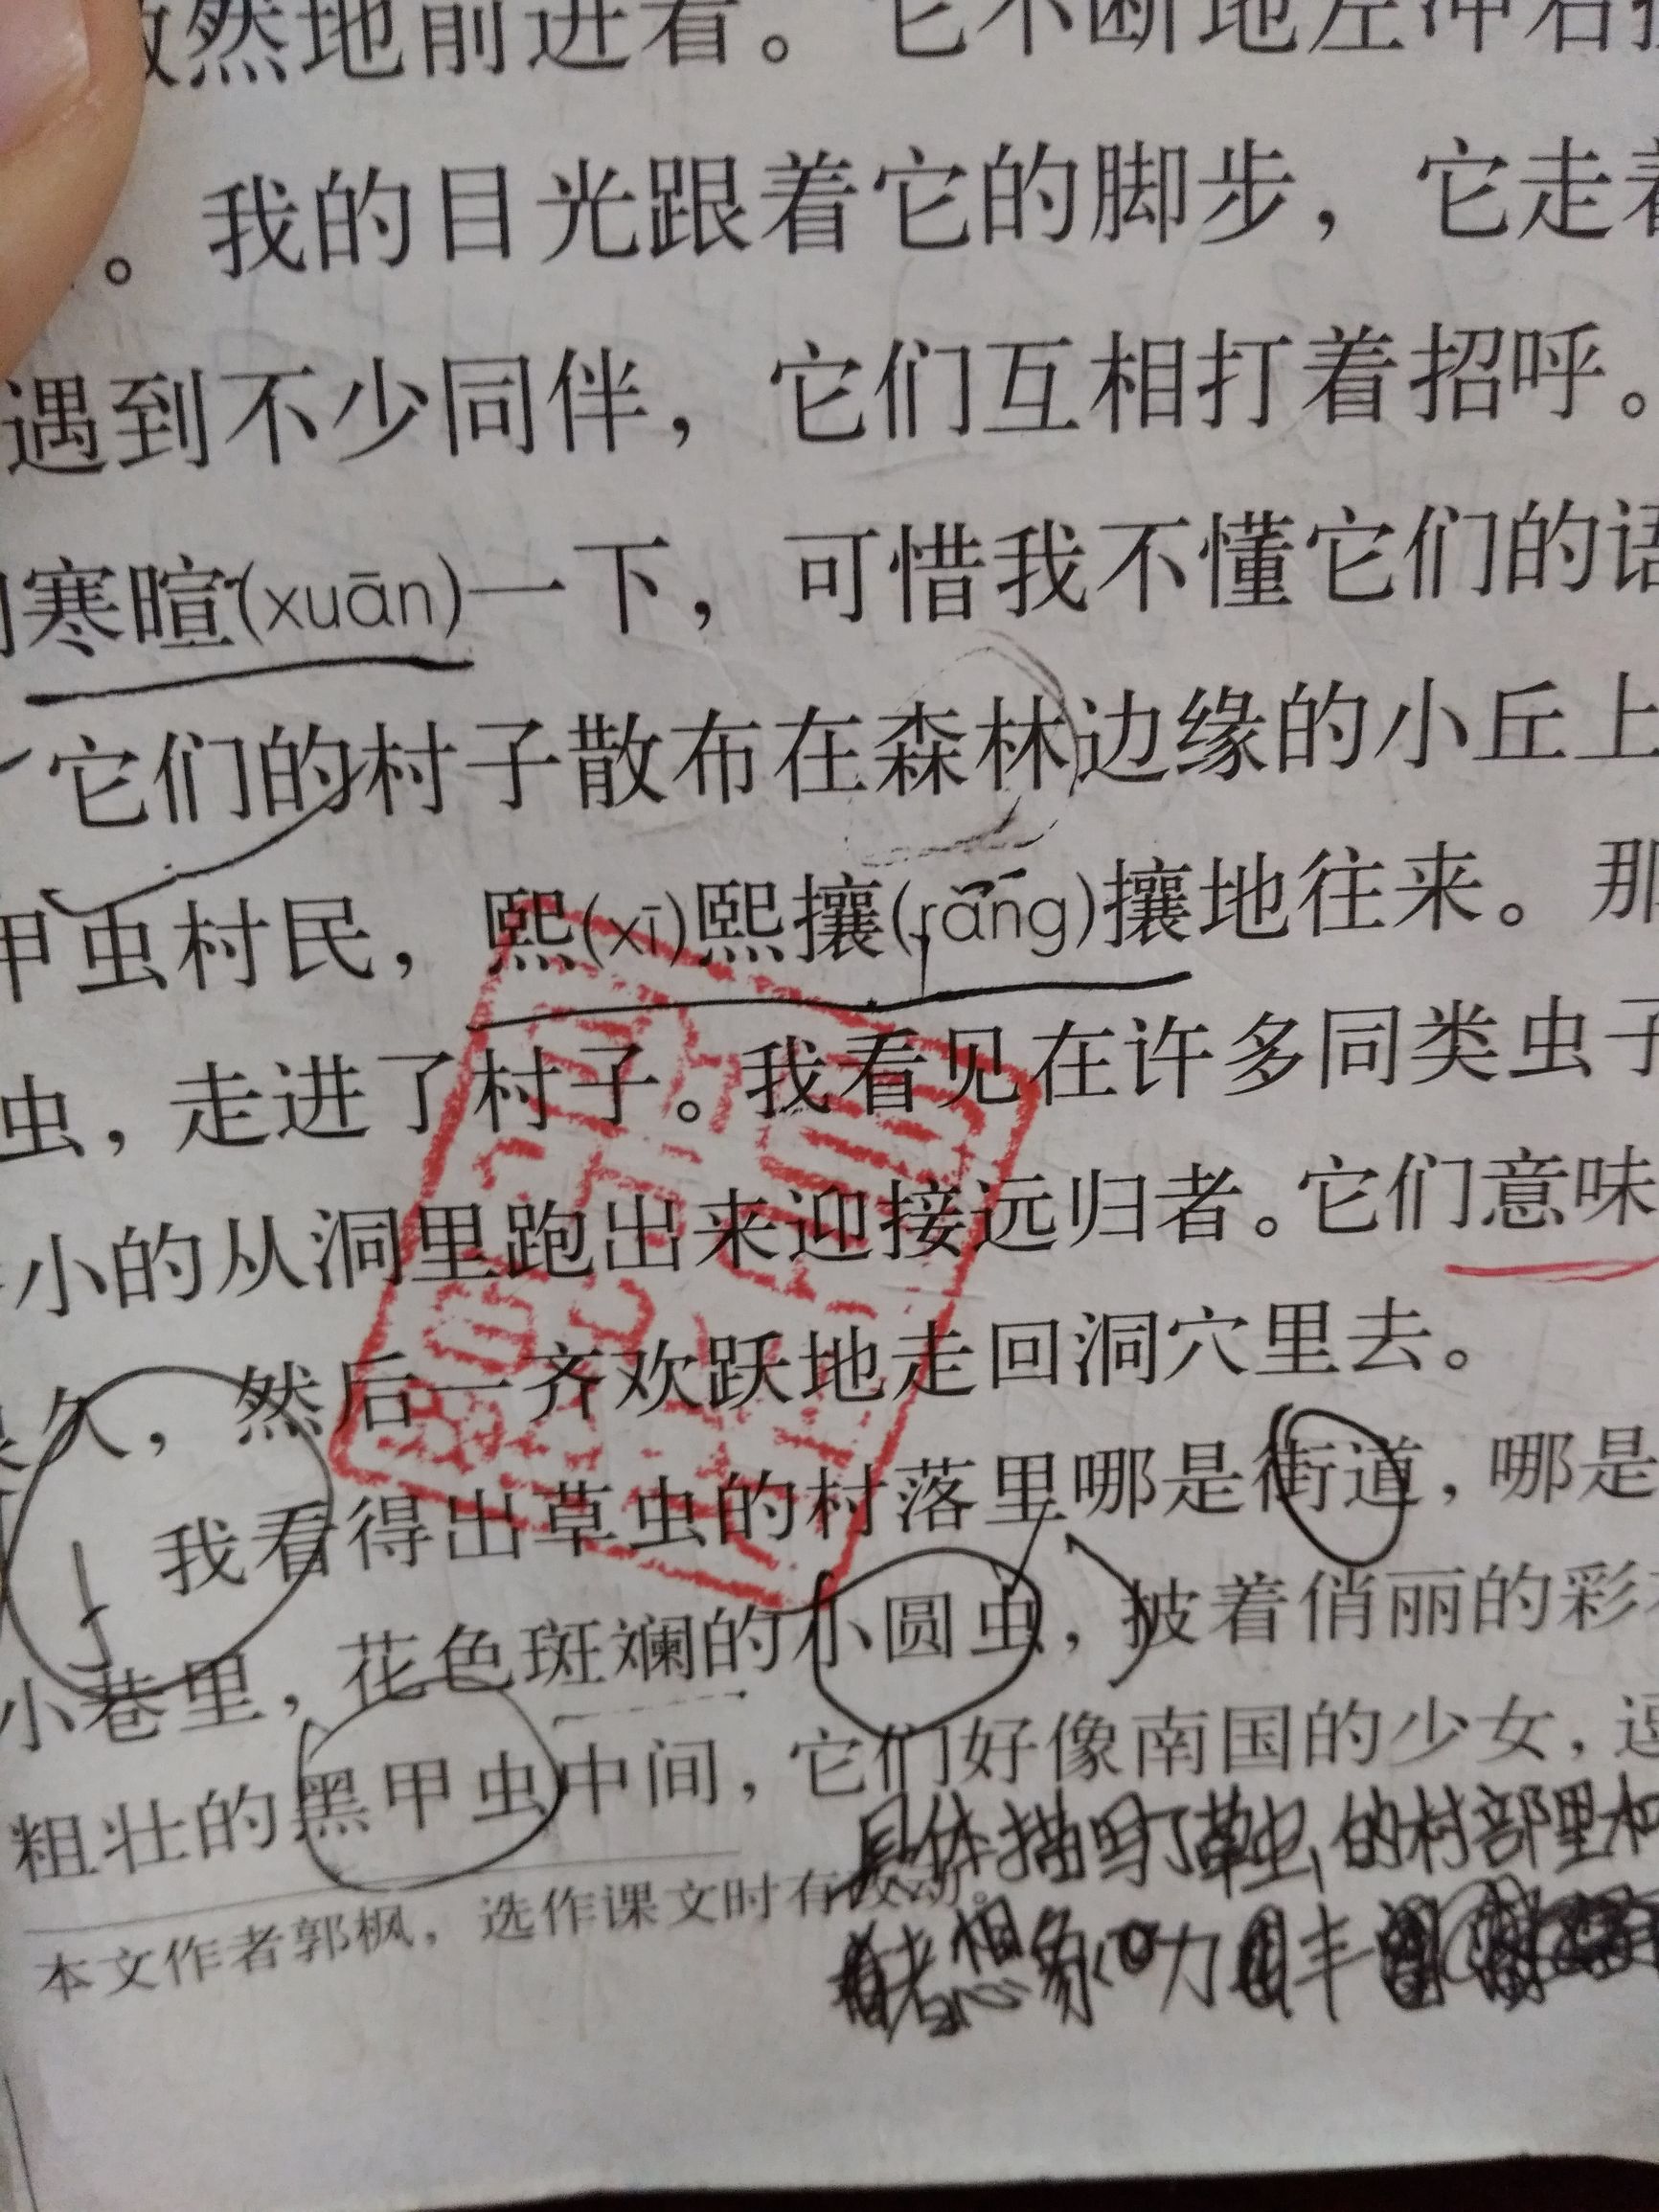 然地前进着。它不断地左冲右
。我的目光跟着它的脚步，它走着
遇到不少同伴，它们互相打着招呼。
寒暄(xuān)一下，可惜我不懂它们的语
它们的村子散布在森林边缘的小丘上
甲虫村民，熙(xī)熙攘(rǎng)攘地往来。那
虫，走进了村子。我看见在许多同类虫子
小的从洞里跑出来迎接远归者。它们意味
久，然后一齐欢跃地走回洞穴里去。
我看得出草虫的村落里哪是街道，哪是
小巷里，花色斑斓的小圆虫，披着俏丽的彩
粗壮的黑甲虫中间，它们好像南国的少女，逗
具体描写了草虫的村部里
本文作者郭枫，选作课文时有改动。
想象力丰